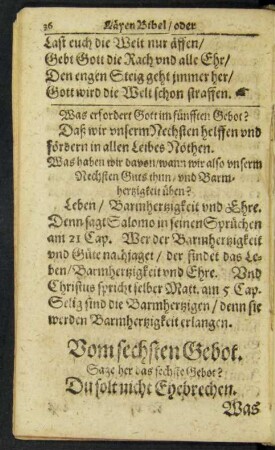 36 Läyen Bibel / oder
Last euch die Welt nur äffen /
Gebt Gott die Rach vnd alle Ehr /
Den engen Steig geht jmmer her /
Gott wird die Welt schon straffen.
Was erfordert Gott im fünfften Gebot?
Daß wir vnserm Nechsten helffen vnd
fördern in allen Leibes Nöthen.
Was haben wir davon / wann wir also vnserm
Nechsten Guts thun / vnd Barm-
hertzigkeit üben?
Leben / Barmhertzigkeit vnd Ehre.
Denn sagt Salomo in seinen Sprüchen
am 21 Cap. Wer der Barmhertzigkeit
vnd Güte nachjaget / der findet das Le-
ben / Barmhertzigkeit vnd Ehre. Vnd
Christus spricht selber Matt. am 5 Cap.
Selig sind die Barmhertzigen / denn sie
werden Barmhertzigkeit erlangen.
Vom sechsten Gebot.
Sage her das sechste Gebot?
Du solt nicht Ehebrechen.
Was